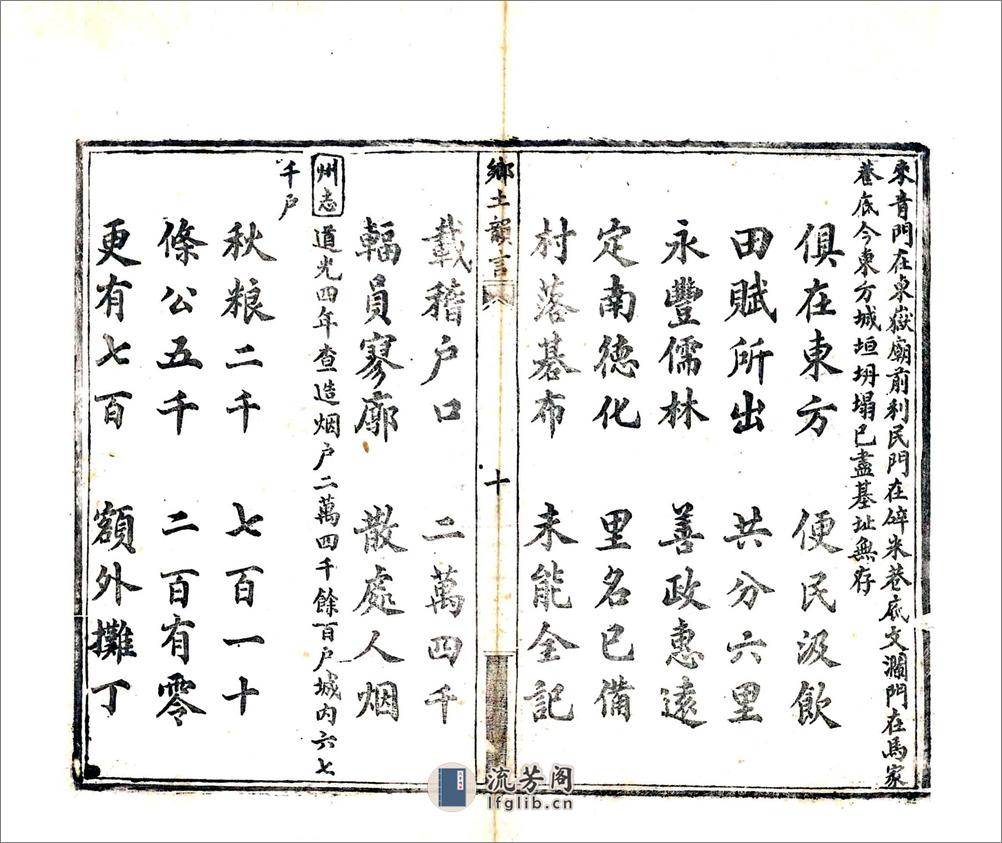 來青門在東嶽廟前利民門在碎米巷底文瀾門在馬家
巷底今東方城垣坍塌已盡基址無存
俱在東方 便民汲飲
田賦所出 共分六里
永豐儒林 善政惠遠
定南德化 里名已備
村落碁布 未能全記
鄉土韻言 十
載稽户口 二萬四千
輻員寥廓 散處人烟
州志 道光四年查造烟户二萬四千餘百户城内六七
千户
秋粮二千 七百一十
條公五千 二百有零
更有七百 額外攤丁
流芳阁
lfglib.cn